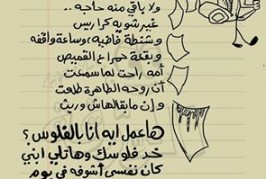 ولا باقي منه حاجه ..
غير شوية كراريس
وشنطة فاضيه وساعة واقفه
وبقعة حمرا ع القميص
أمه راحت لما سمعت
أن روحه الطاهرة طلعت
وإن ما بقالهاش وريث
هاعمل ايه انا بالفلوس ؟
خد فلوسك وهاتلي ابني
كان نفسي أشوفه في يوم